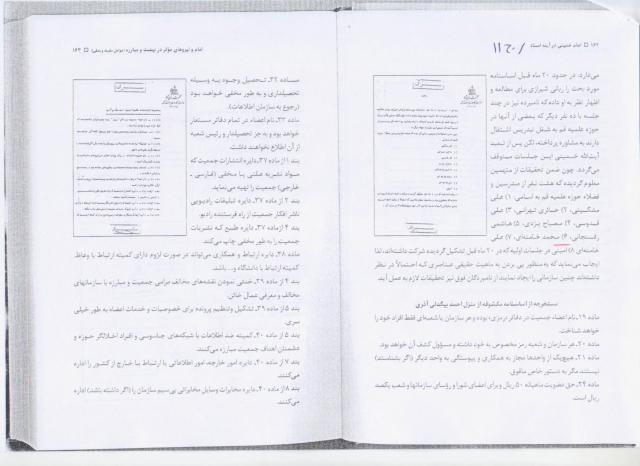 ۱۶۲ □ امام خمینی در آینه اسناد
می‌دارد، در حدود ۲۰ ماه قبل اساسنامه
مورد بحث را ربانی شیرازی برای مطالعه و
اظهار نظر به او داده که نامبرده نیز در چند
جلسه با ده نفر دیگر که بعضی از آنها در
حوزه علمیه قم به شغل تدریس اشتغال
دارند به مشاوره پرداخته، لکن پس از تبعید
آیت‌الله خمینی این جلسات متوقف
می‌گردد. چون ضمن تحقیقات از متهمین
معلوم گردیده که هشت نفر از مدرسین و
فضلاء حوزه علمیه قم به اسامی: ۱) علی
مشکینی، ۲) حسین‌علی تهرانی، ۳) علی
قدوسی، ۴) مصباح یزدی، ۵) هاشمی
رفسنجانی، ۶) محمد خامنه‌ای، ۷) علی
خامنه‌ای ۸) امینی در جلسات اولیه که در ۲۰ ماه قبل تشکیل گردیده شرکت داشته‌اند، لذا
ایجاب می‌نماید که به‌منظور پی بردن به ماهیت حقیقی عناصری که احتمالاً در نظر
داشته‌اند چنین سازمانی را ایجاد نمایند از نامبردگان فوق نیز تحقیقات لازم به عمل آید.
مستخرجه از اساسنامه مکشوفه از منزل احمد بیگدلی آذری
ماده ۱۹. نام اعضاء جمعیت در دفاتر رمزی، بوده و هر سازمان یا شعبه‌ای فقط افراد خود را
خواهد شناخت.
ماده ۲۰. هر سازمان و شعبه رمز مخصوص به خود داشته و مسؤول کشف آن خواهد بود.
ماده ۲۱. هیچ‌یک از واحدها مجاز به همکاری و پیوستگی به واحد دیگر (اگر بشناسند)
نیستند مگر به دستور خاص مافوق.
ماده ۲۴. حق عضویت ماهیانه ۵۰ ریال و برای اعضای شورا و رؤسای سازمانها و شعب یکصد
ریال است.
امام و نیروهای مؤثر در نهضت و مبارزه (عوامل مثبت و منفی) □ ۱۶۳
مـاده ۳۲. تـحصیل وجـوه بـه وسیله
تحصیلداری و به طور مخفی خواهـد بـود
(رجوع به سازمان اطلاعات).
ماده ۳۳. نام اعضاء در تمام دفاتر مستعار
خواهد بود و به جز تحصیلدار و رئیس شعبه
از آن اطلاع نخواهند داشت.
بند ۱ از ماده ۳۷. دایره انتشارات جمعیت که
مـواد نشریه علنی یـا مخفی (فـارسی ـ
خارجی) جمعیت را تهیه می‌نماید.
بند ۲ از ماده ۳۷. دایره تبلیغات رادیویی
ناشر افکار جمعیت از راه فرستنده رادیو.
بند ۴ از ماده ۳۷. دایره طبع کـه نشریات
جمعیت را به طور مخفی چاپ می‌کند.
ماده ۳۸. دایره ارتباط و همکاری می‌تواند در صورت لزوم دارای کمیته ارتباط با وعاظ،
کمیته ارتباط با دانشگاه و... باشد.
بند ۴ از ماده ۳۹. خنثی نمودن نقشه‌های مخالف مرامی جمعیت و مبارزه با سازمانهای
مخالف و معرفی عمال خائن.
بند ۵ از ماده ۳۹. تشکیل و تنظیم پرونده برای خصوصیات و خدمات اعضاء به طور خیلی
سری.
بند ۵ از ماده ۴۰. کمیته ضد اطلاعات با شبکه‌های جـاسوسی و افـراد اخـلالگر حـوزه و
دشمنان اهداف جمعیت مبارزه می‌کنند.
بند ۷ از ماده ۴۰. دایره امور خارجه، امور اطلاعاتی یا ارتباط بـا خـارج از کشور را اداره
می‌کنند.
بند ۸ از ماده ۴۰. دایره مخابرات وسایل مخابراتی بی‌سیم سازمان را (اگر داشته باشد) اداره
می‌کنند.